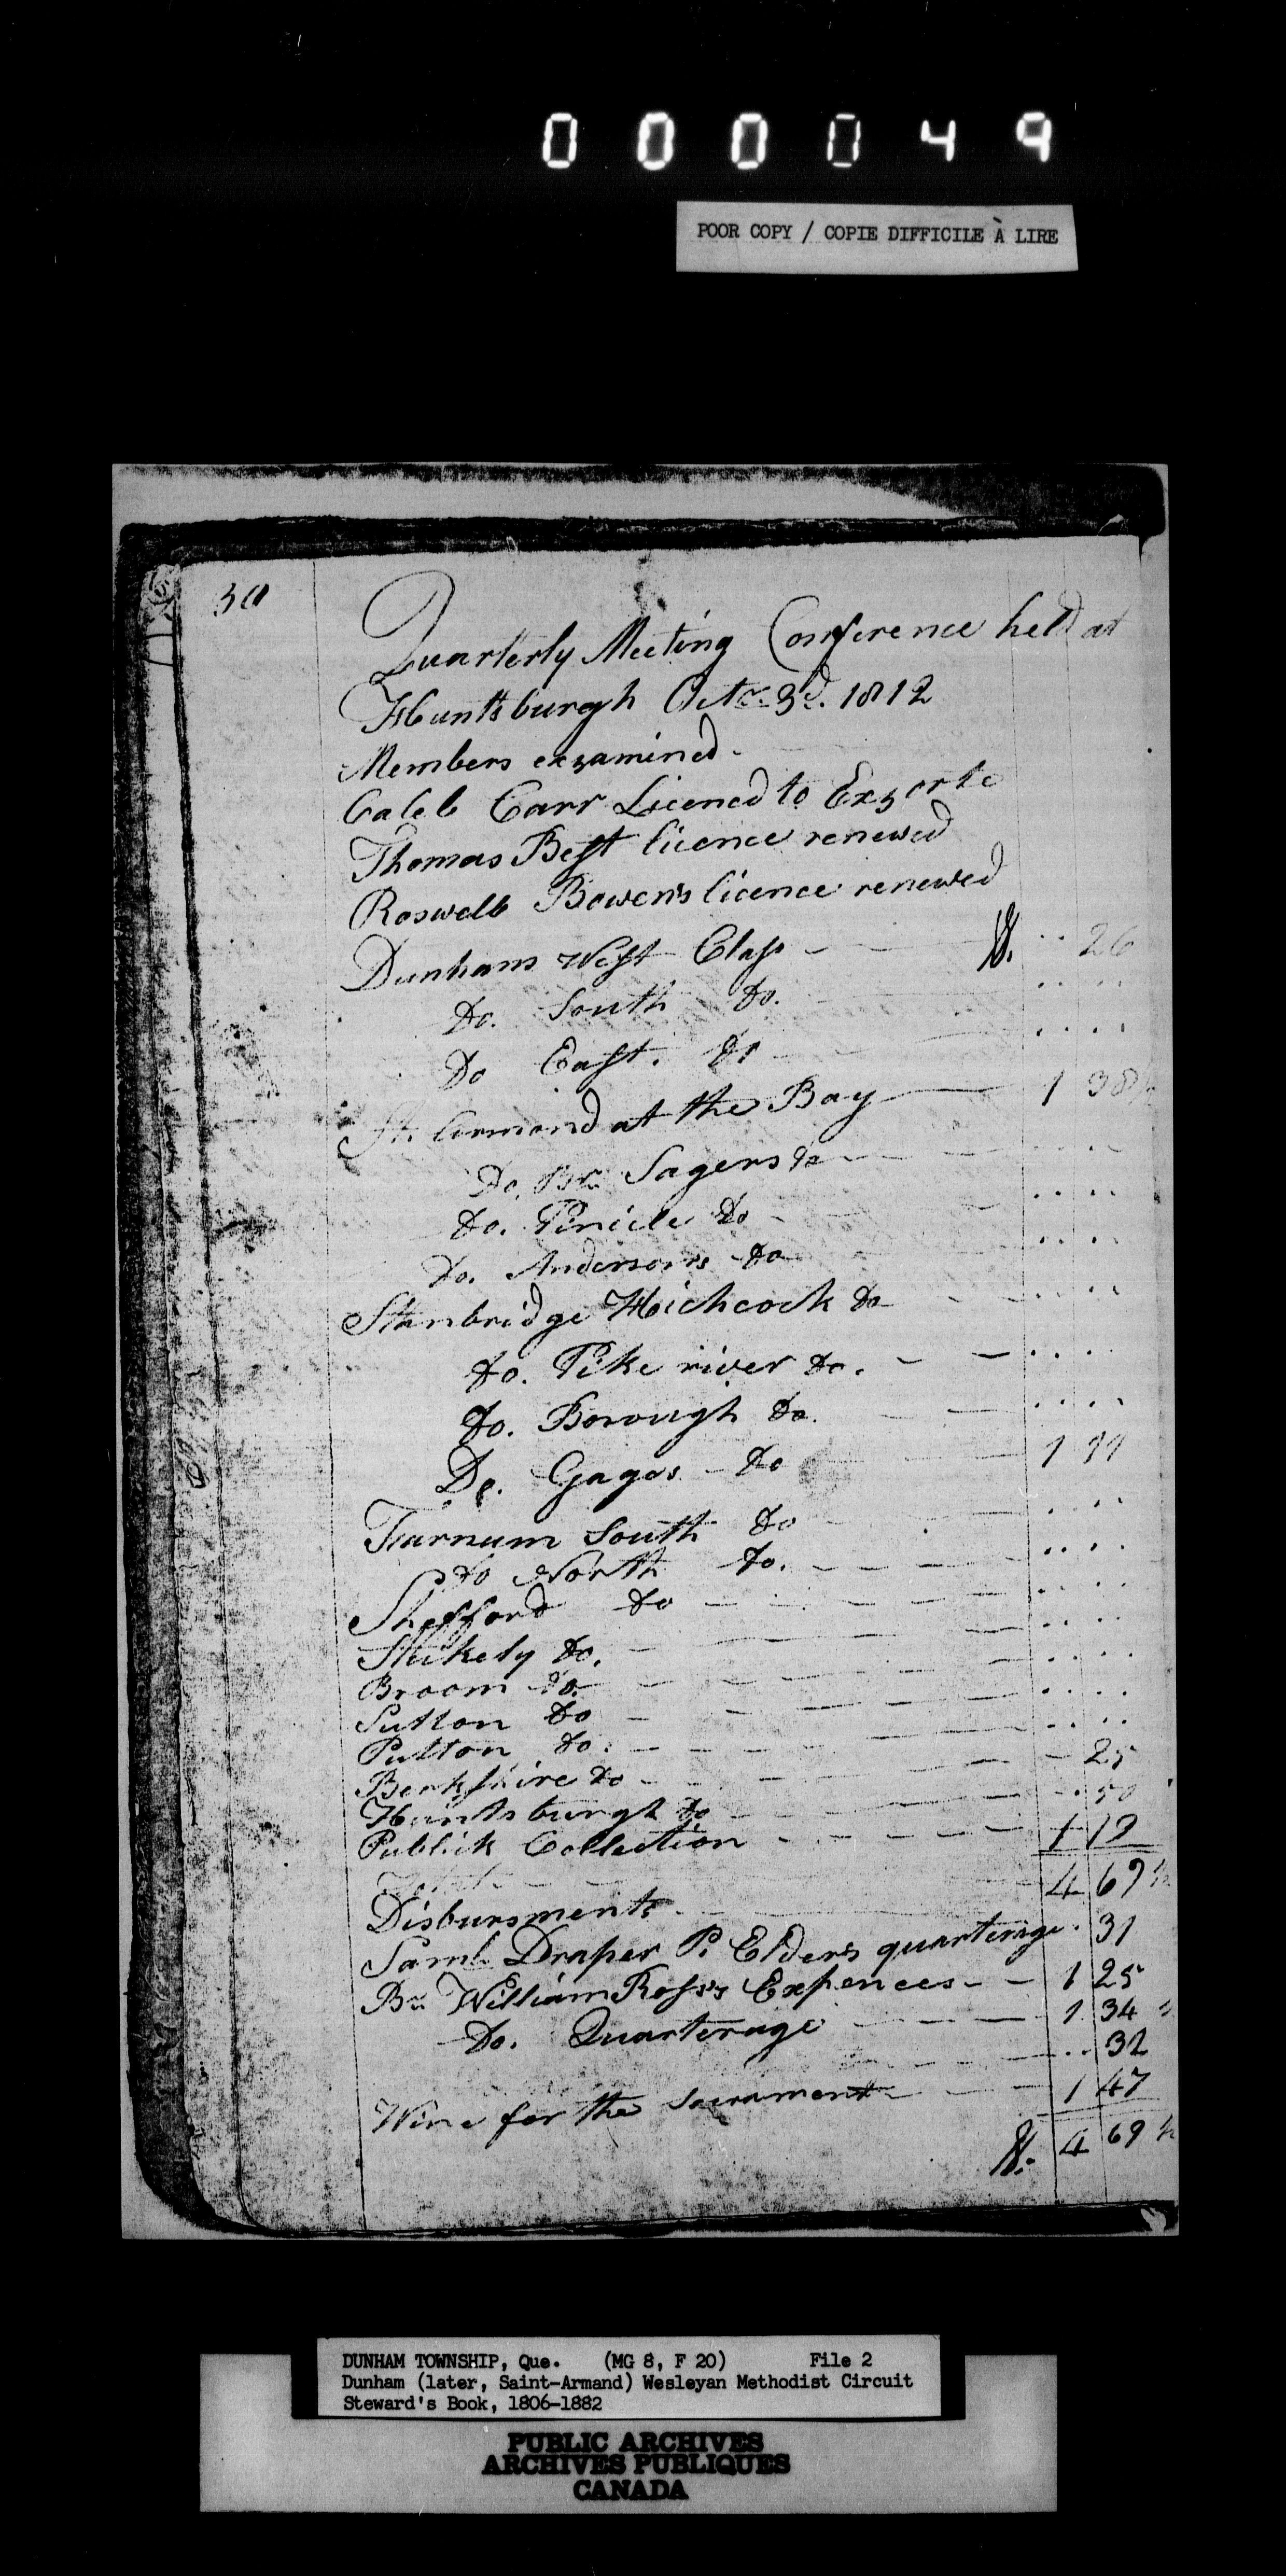 000049
POOR COPY / COPIE DIFFICILE À LIRE
Quarterly Meeting Conference held at
Huntsburgh Octr. 3d. 1812
Members exzamined -
Caleb Carr Licened to Exzorte
Thomas Best licence renewed
Roswell Bowen's licence renewed
Dunham West Class - - $. .. 26
Do. South Do. - .. ..
Do East. Do - - .. ..
St. Armond at the Bay - 1 38½
Do. Br. Sagers Do - - .. ..
Do. Pinicle Do - - .. ..
Do. Anderson's Do .. ..
Stanbridge Hichcock Do - - .. ..
Do. Pike river Do. - - .. ..
Do. Borough Do. - - .. ..
Do. Gages - Do - 1
Farnum South Do - - .. ..
Do North Do. - - - .. ..
Shefford Do - - - - .. ..
Stukely Do. - - - - .. ..
Broom Do. - - - - .. ..
Sutton Do - - - - .. ..
Putton Do. - - - - .. ..
Berkshire Do - - - - 25
Huntsburgh Do - - - .. 50
Publick Collection - - - - 1 19
Total - - - 4 69 ½
Disbursments - -
Saml. Draper P. Elder's quarterage . 31
Br. William Ross's Expences - - 1 25
Do. Quarterage - - - 1 34 ½
- - .. 32
Wine for the Sacrament - - 1 47
$. 4 69 ½
DUNHAM TOWNSHIP, Que. (MG 8, F 20) File 2
Dunham (later, Saint-Armand) Wesleyan Methodist Circuit
Steward's Book, 1806-1882
PUBLIC ARCHIVES
ARCHIVES PUBLIQUES
CANADA